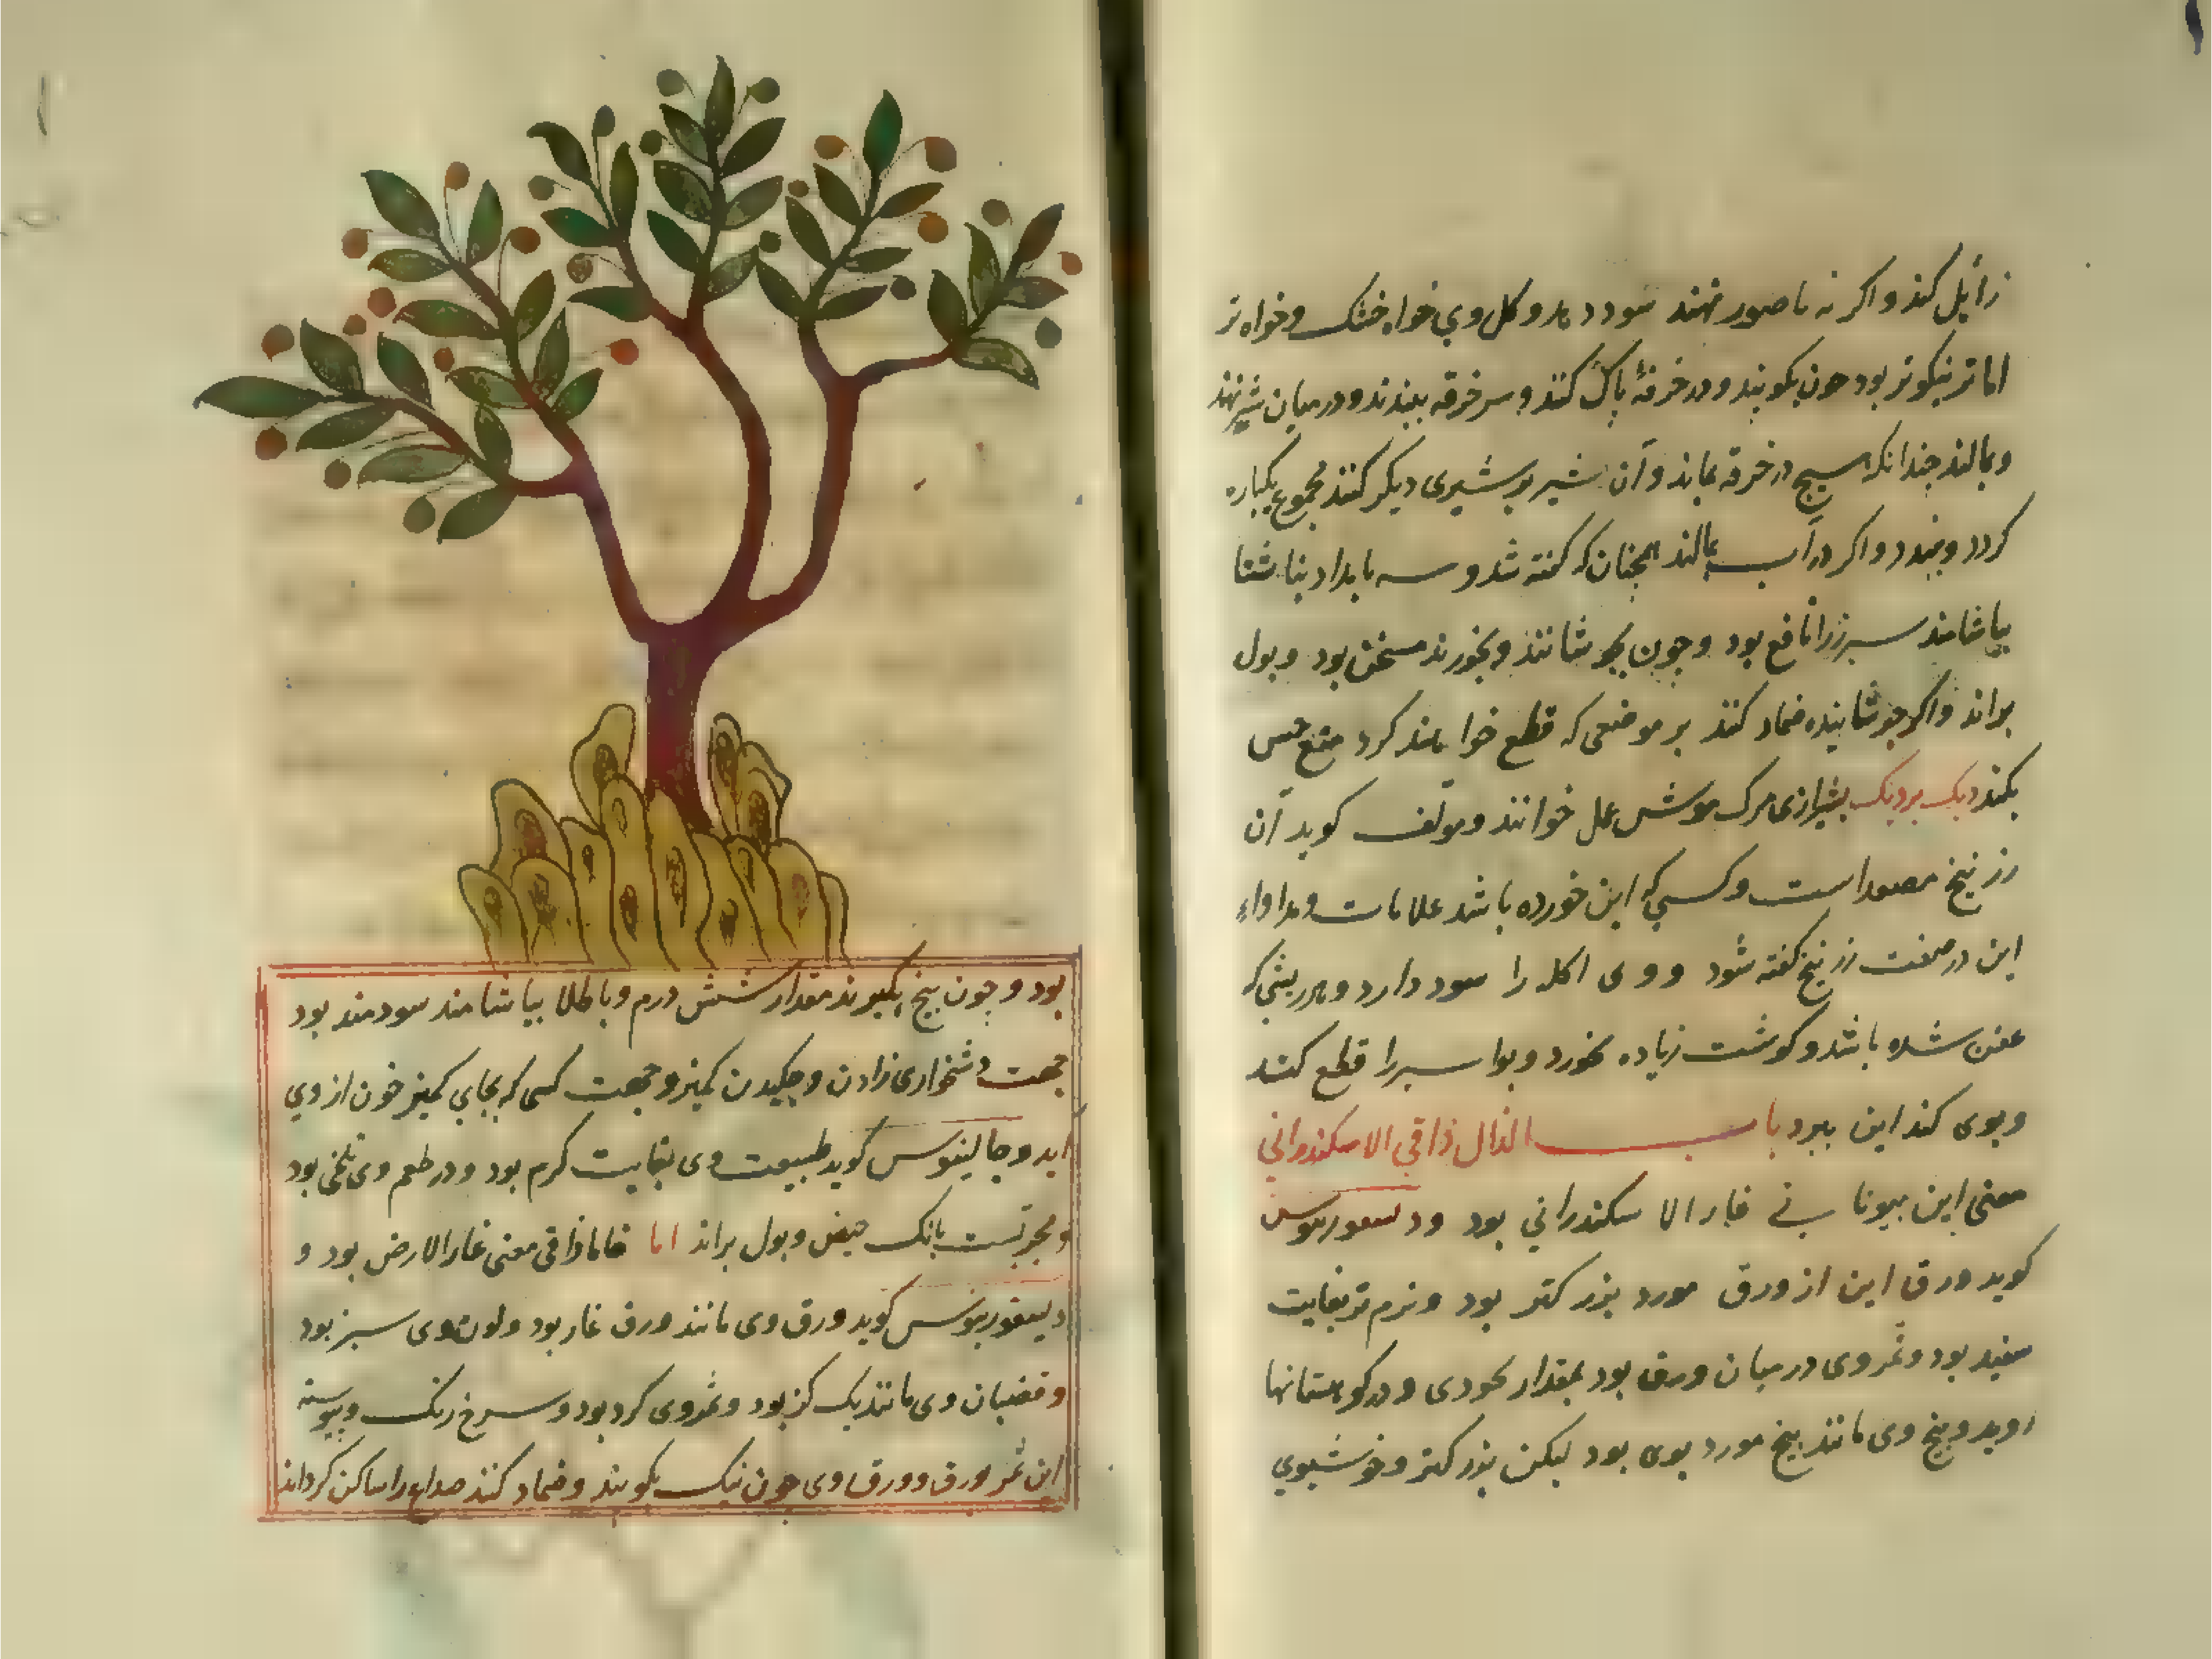 زایل کند و اکر نه ناصور نهند سود دهد و کل وی خواه خشک و خواه تر
اما تر نیکوتر بود جون بکوبند و در خرقهٔ پاک کنند و سر خرقه ببندند و در میان شیر نهند
و بمالند جندانکه هیج در خرقه نماند و آن شیر بر شیری دیکر کنند مجموع یکباره
کردد و ببندد و اکر در آب بمالند همجنان که کفته شد و سه بامداد بناشتا
بیاشامند سبرز را نافع بود و جون بجوشانند و بخورند مسخن بود و بول
براند و اکر جوشانیده ضماد کنند بر موضعی که قطع خواهند کرد منع حس
بکند دیک بردیک بشیرازی مرک موش عمل خوانند و مولف کوید آن
زرنیخ مصعد است و کسی که این خورده باشد علامات و مداواء
این در صفت زرنیخ کفته شود و وی اکله را سود دارد و هر ریشی که
عفن شده باشد و کوشت زیاده بخورد و بواسیر را قطع کند
و بوی کند این ببرد باب الذال ذاقی الاسکندرانی
معنی این بیونانی غار الاسکندرانی بود و دیسقوریدوس
کوید ورق این از ورق مورد بزرکتر بود و نرم تر بغایت
سفید بود و ثمر وی در میان ورق بود بمقدار نخودی و در کوهستانها
روید و بیخ وی مانند بیخ مورد بوی بود لیکن بزرکتر و خوشبوی
بود و جون بیخ بکیرند مقدار شش درم و با طلا بیاشامند سودمند بود
جهت دشخواری زادن و جکیدن کمیز و جهت کسی که بجای کمیز خون از وی
اید و جالینوس کوید طبیعت وی بغایت کرم بود و در طعم وی تلخی بود
و مجربست بانک حیض و بول براند اما خاماذاقی معنی غار الارض بود و
دیسقوریدوس کوید ورق وی مانند ورق غار بود و لون وی سبز بود
و قضبان وی مانند یک کز بود و ثمر وی کرد بود و سرخ رنک و پیوسته
این ثمر ورق و ورق وی جون نیک بکوبند و ضماد کنند صداع را ساکن کرداند